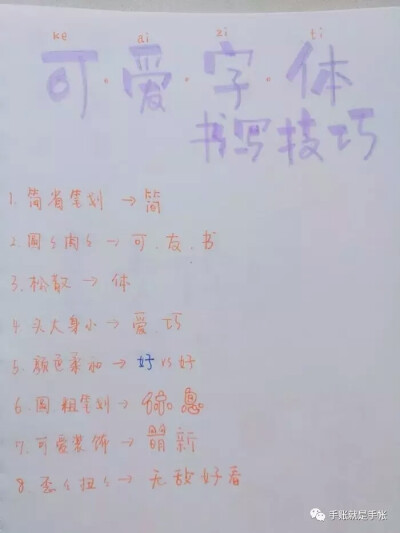 ke ai zi ti
可·爱·字·体
书写技巧
1.简省笔划→简
2.圆々肉々→可、友、书
3.松散→体
4.头大身小→爱、巧
5.颜色柔和→好 vs 好
6.圆粗笔划→你。恩。
7.可爱装饰→萌新
8.歪々扭々→无敌好看
手账就是手帐